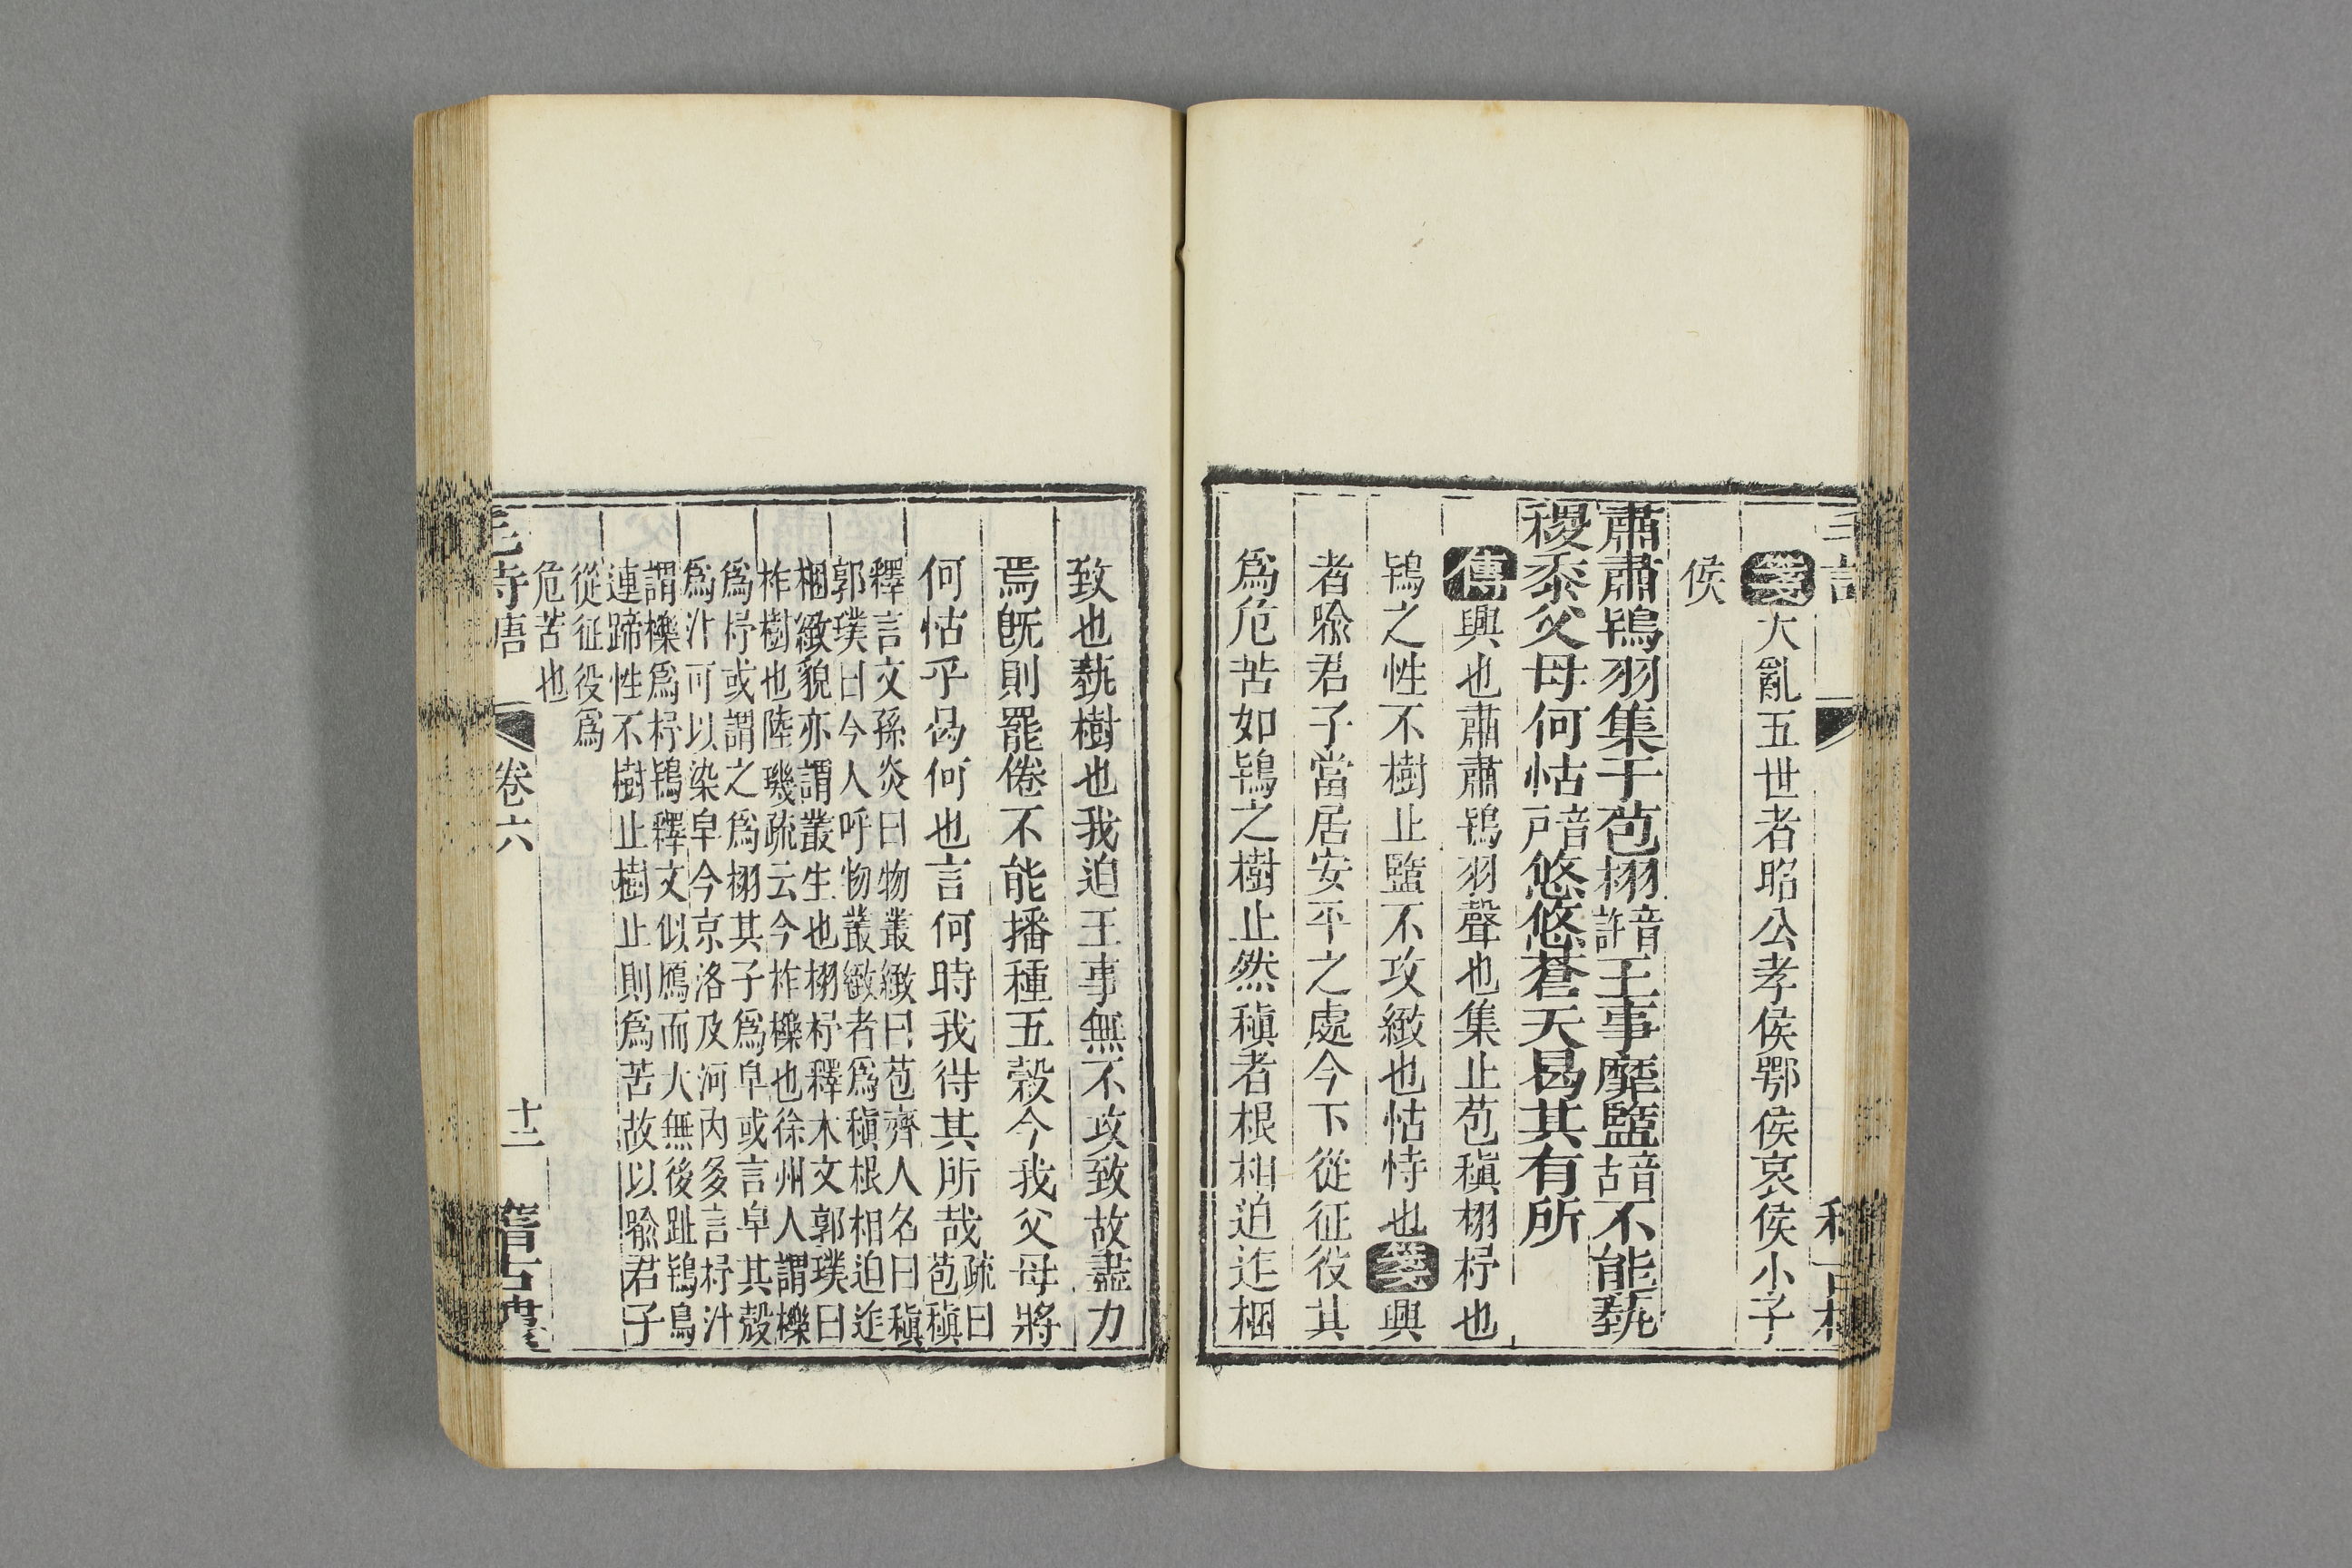 箋大亂五世者昭公孝侯鄂侯哀侯小子
侯
肅肅鴇羽集于苞栩音許王事靡盬音古不能蓺
稷黍父母何怙音戶悠悠蒼天曷其有所
傳興也肅肅鴇羽聲也集止苞稹栩杼也
鴇之性不樹止盬不攻緻也怙恃也箋興
者喩君子當居安平之處今下從征役其
爲危苦如鴇之樹止然稹者根相迫迮梱
致也蓺樹也我迫王事無不攻致故盡力
焉旣則罷倦不能播種五穀今我父母將
何怙乎曷何也言何時我得其所哉疏曰
苞稹
釋言文孫炎曰物叢緻曰苞齊人名曰稹
郭璞曰今人呼物叢緻者爲稹根相迫迮
梱緻貌亦謂叢生也栩杼釋木文郭璞曰
柞樹也陸璣疏云今柞櫟也徐州人謂櫟
爲杼或謂之爲栩其子爲皁或言皁其殼
爲汁可以染皁今京洛及河內多言杼汁
謂櫟爲杼鴇釋文似鴈而大無後趾鴇鳥
連蹄性不樹止樹止則爲苦故以喩君子
從征役爲
危苦也
卷六
十二